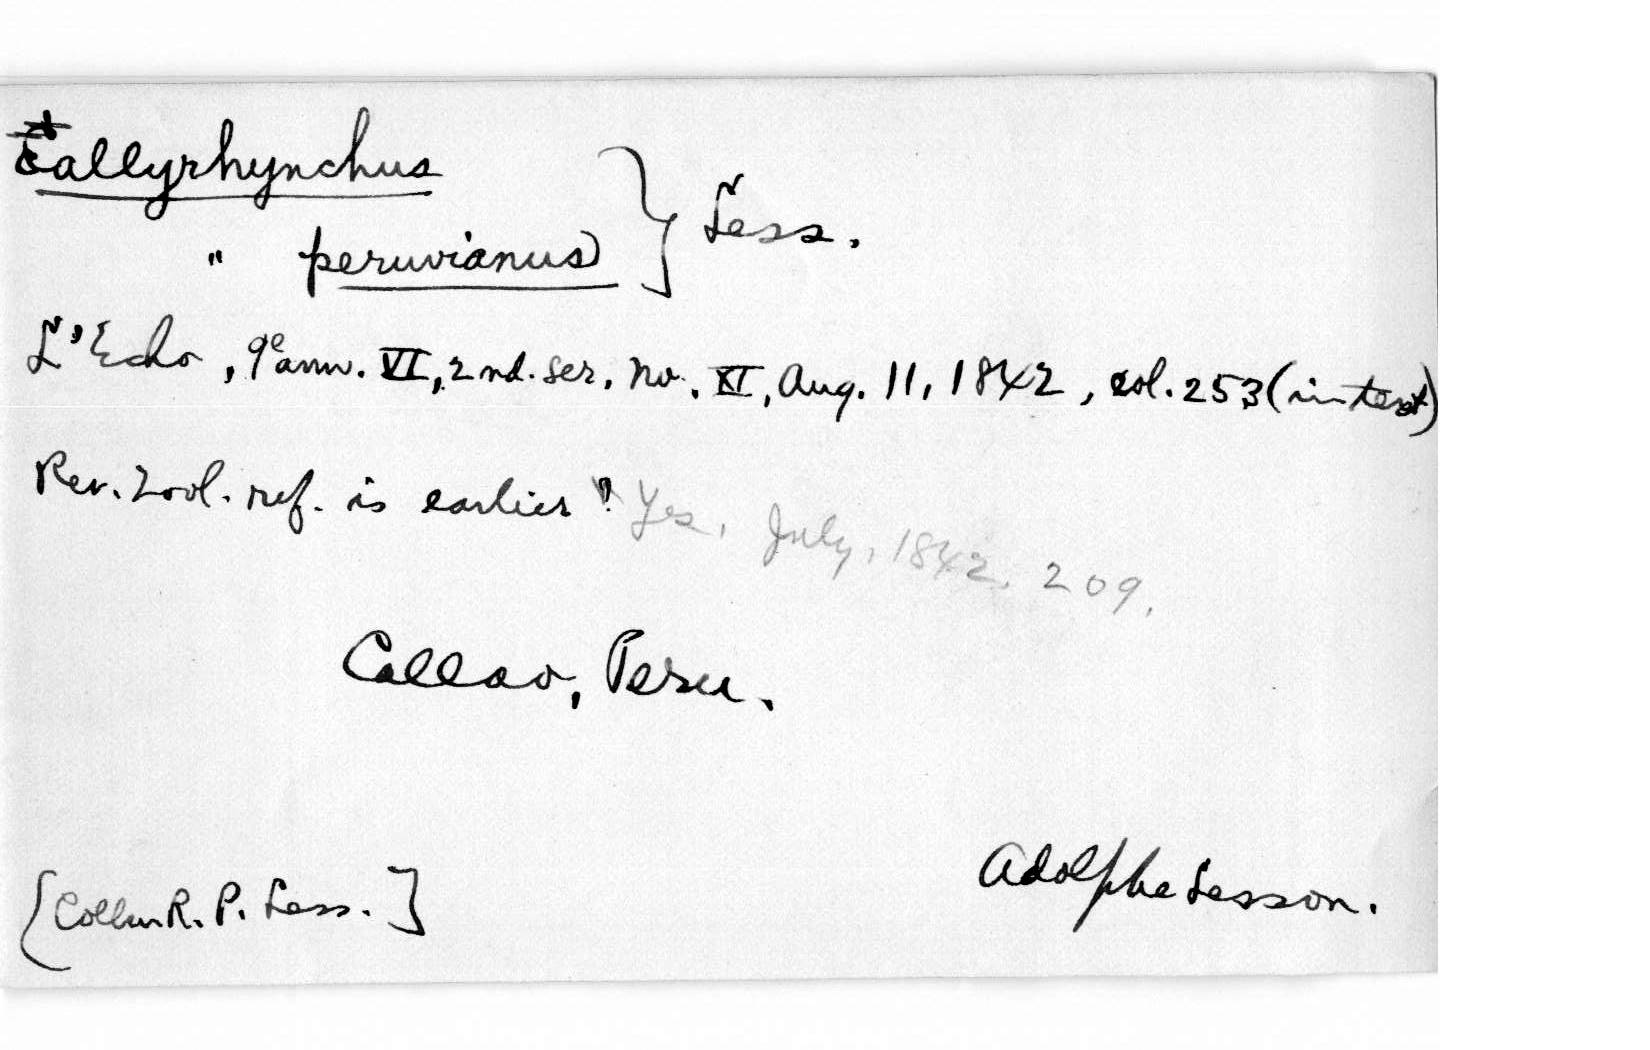 Callyrhynchus
" peruvianus } Less.
L'Echo, 9e ann. VI, 2nd. ser. No. XI, Aug. 11, 1842, col. 253 (in text)
Rev. Zool. ref. is earlier? Yes, July, 1842, 209.
Callao, Peru.
Adolphe Lesson.
[Colln R. P. Less.]